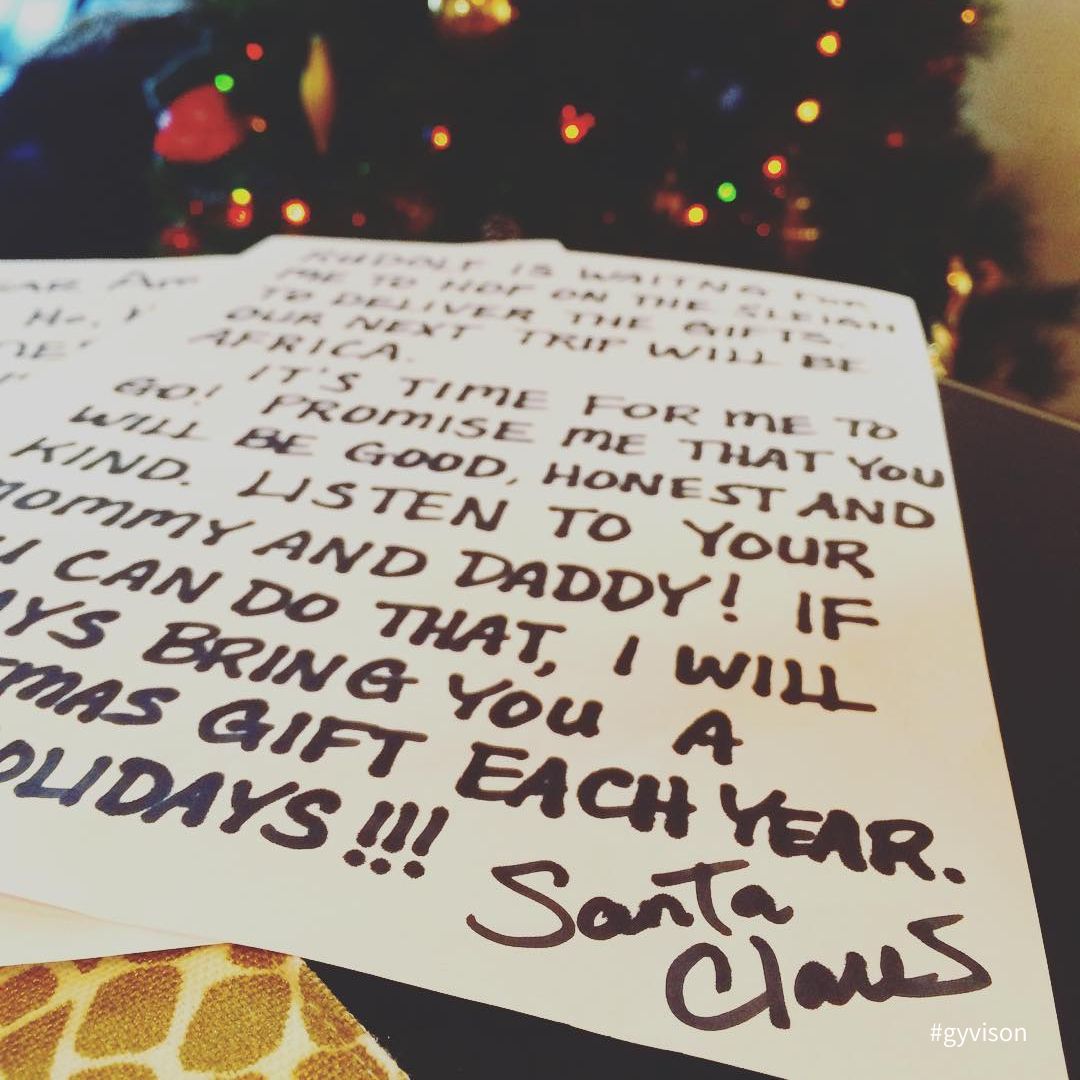 RUDOLF IS WAITNG FOR
ME TO HOP ON THE SLEIGH
TO DELIVER THE GIFTS.
OUR NEXT TRIP WILL BE
AFRICA.
IT'S TIME FOR ME TO
GO! PROMISE ME THAT YOU
WILL BE GOOD, HONEST AND
KIND. LISTEN TO YOUR
MOMMY AND DADDY! IF
CAN DO THAT, I WILL
BRING YOU A
GIFT EACH YEAR.
OLIDAYS!!!
Santa
Claus
#gyvison